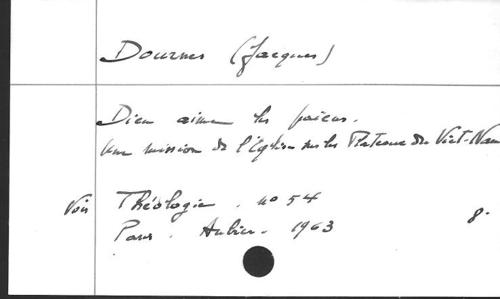 Dournes (Jacques)
Dieu aime les païens.
Une mission de l'Église sur les Plateaux du Viet-Nam
Voir Théologie. n° 54
Paris. Aubier. 1963 8.